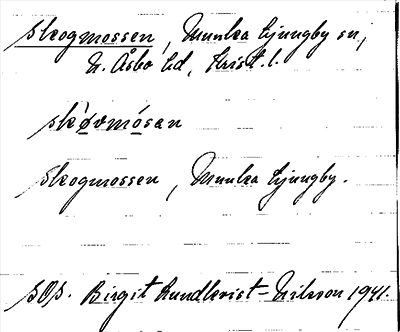 Skogmossen, Munka Ljungby sn,
N. Åsbo hd, Krist. l.
skòvmósan
Skogmossen, Munka Ljungby.
SOS. Birgit Lundkvist-Nilsson 1941.